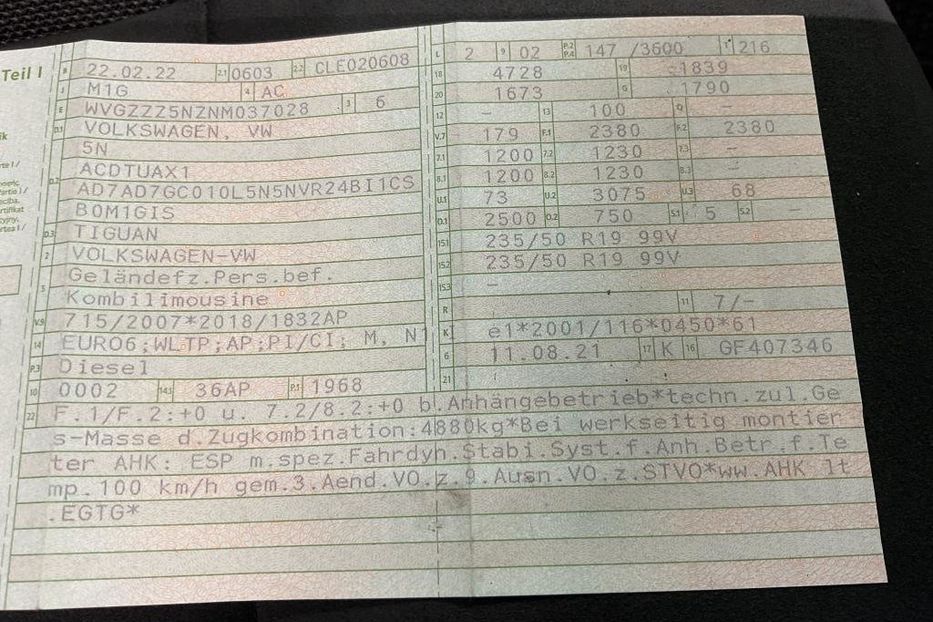 Teil I
B 22.02.22 2.1 0603 2.2 CLE020608
J M1G 4 AC
E WVGZZZ5NZNM037028 3 6
D.1 VOLKSWAGEN, VW
5N
D.2 ACDTUAX1
AD7AD7GC010L5N5NVR24BI1CS
B0M1GIS
D.3 TIGUAN
2 VOLKSWAGEN-VW
5 Geländefz.Pers.bef.
Kombilimousine
V.9 715/2007*2018/1832AP
14 EURO6;WLTP;AP;PI/CI; M, N1
P.3 Diesel
10 0002 14.1 36AP P.1 1968
L 2 9 02 P.2 P.4 147 /3600 T 216
18 4728 19 -1839
20 1673 G 1790
12 – 13 100 Q –
V.7 179 F.1 2380 F.2 2380
7.1 1200 7.2 1230 7.3 –
8.1 1200 8.2 1230 8.3 –
U.1 73 U.2 3075 U.3 68
O.1 2500 O.2 750 S.1 5 S.2 –
15.1 235/50 R19 99V
15.2 235/50 R19 99V
15.3 –
R 11 7/–
K e1*2001/116*0450*61
6 11.08.21 17 K 16 GF407346
21
22 F.1/F.2:+0 u. 7.2/8.2:+0 b.Anhängebetrieb*techn.zul.Ge
s-Masse d.Zugkombination:4880kg*Bei werkseitig montier
ter AHK: ESP m.spez.Fahrdyn.Stabi.Syst.f.Anh.Betr.f.Te
mp.100 km/h gem.3.Aend.VO.z.9.Ausn.VO.z.STVO*ww.AHK lt
.EGTG*